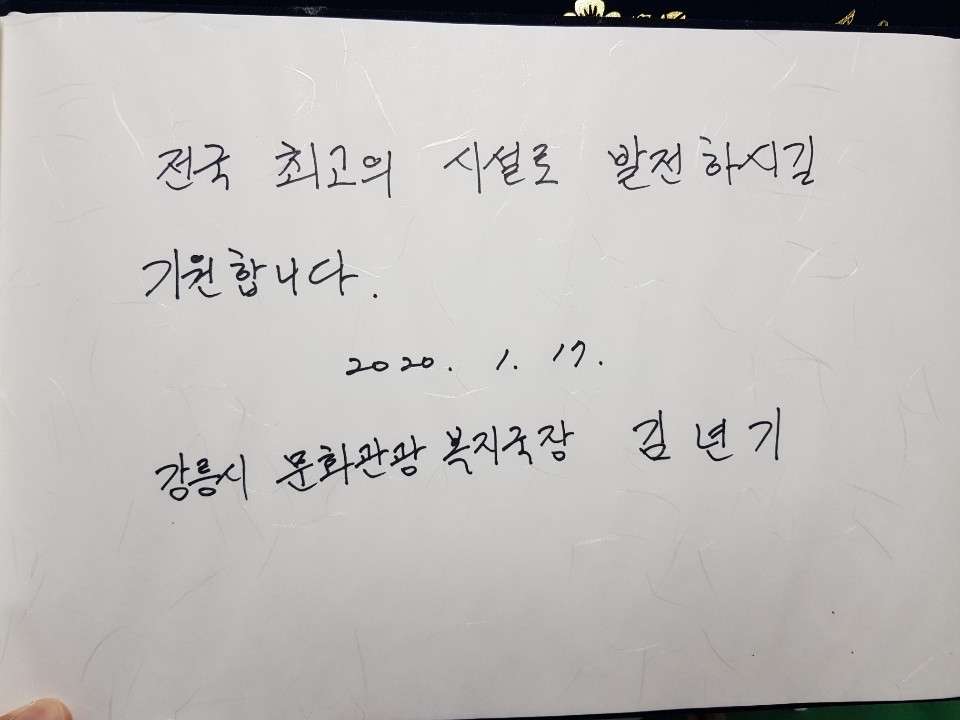 전국 최고의 시설로 발전하시길
기원합니다.
2020. 1. 17.
강릉시 문화관광복지국장 김년기